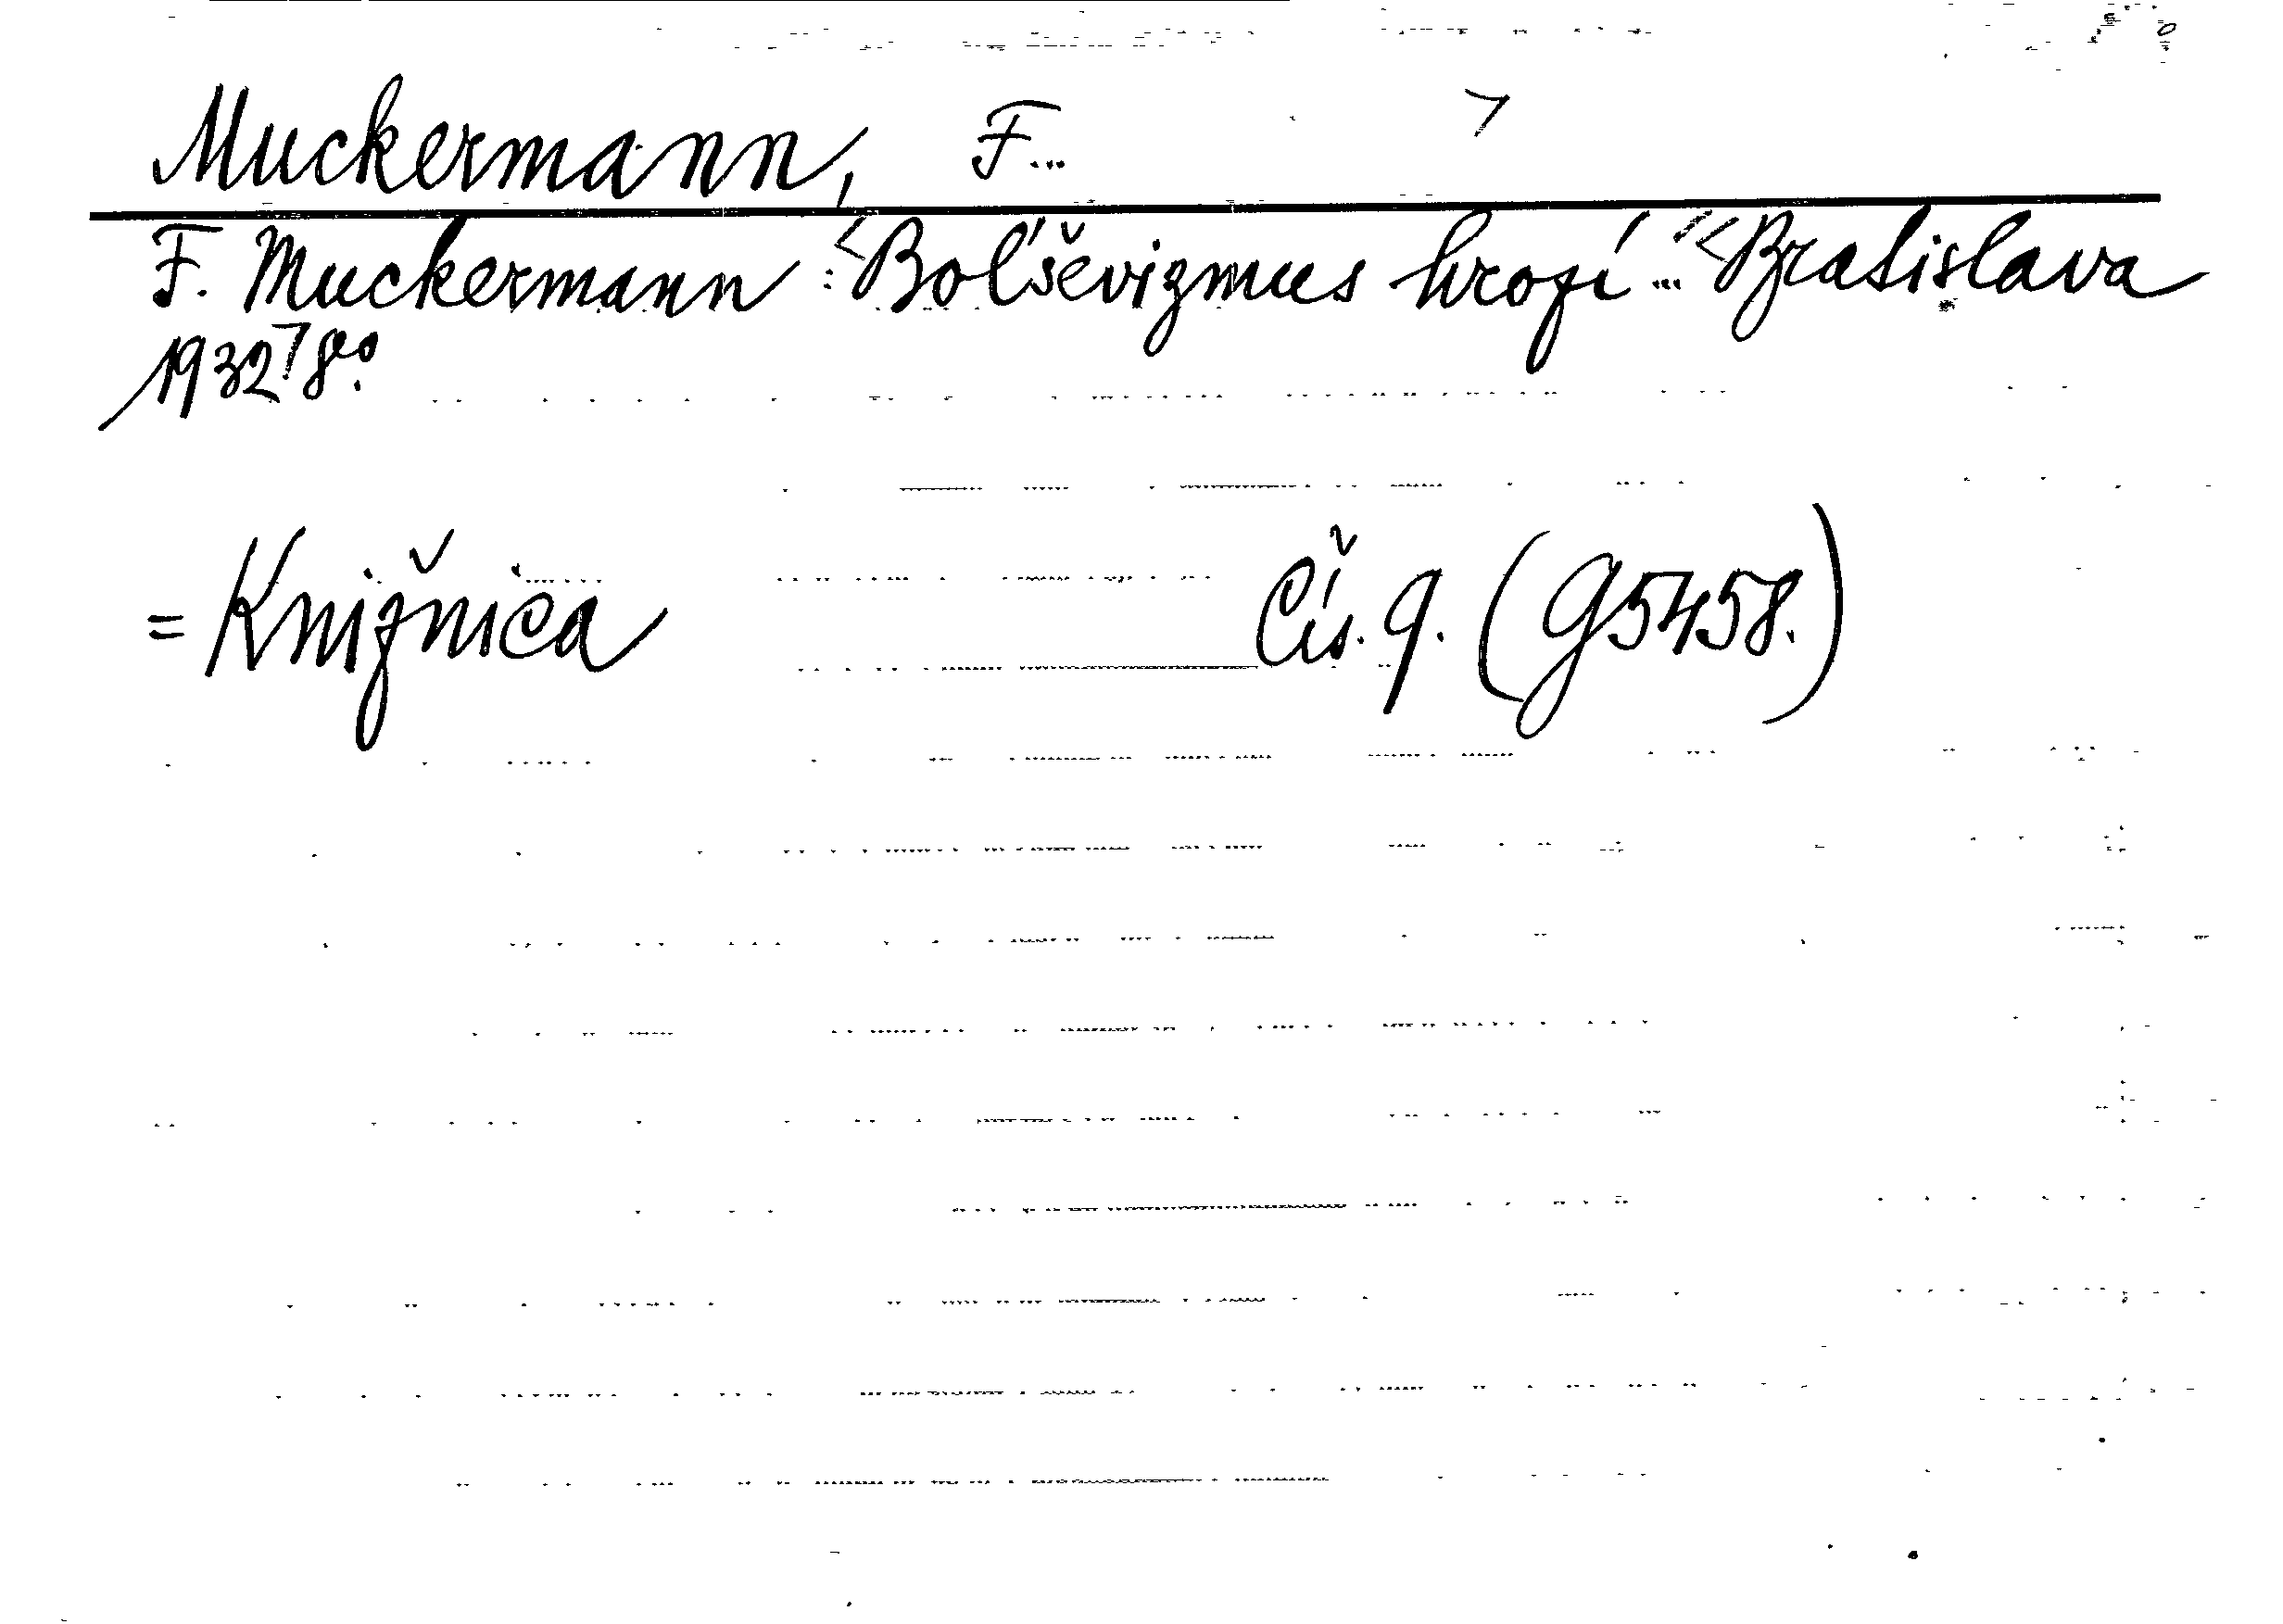 Muckermann, F...
F. Muckermann: Boľševizmus hrozí... Bratislava
1932 8°.
= Knižnica Čís. 9. (G5458.)